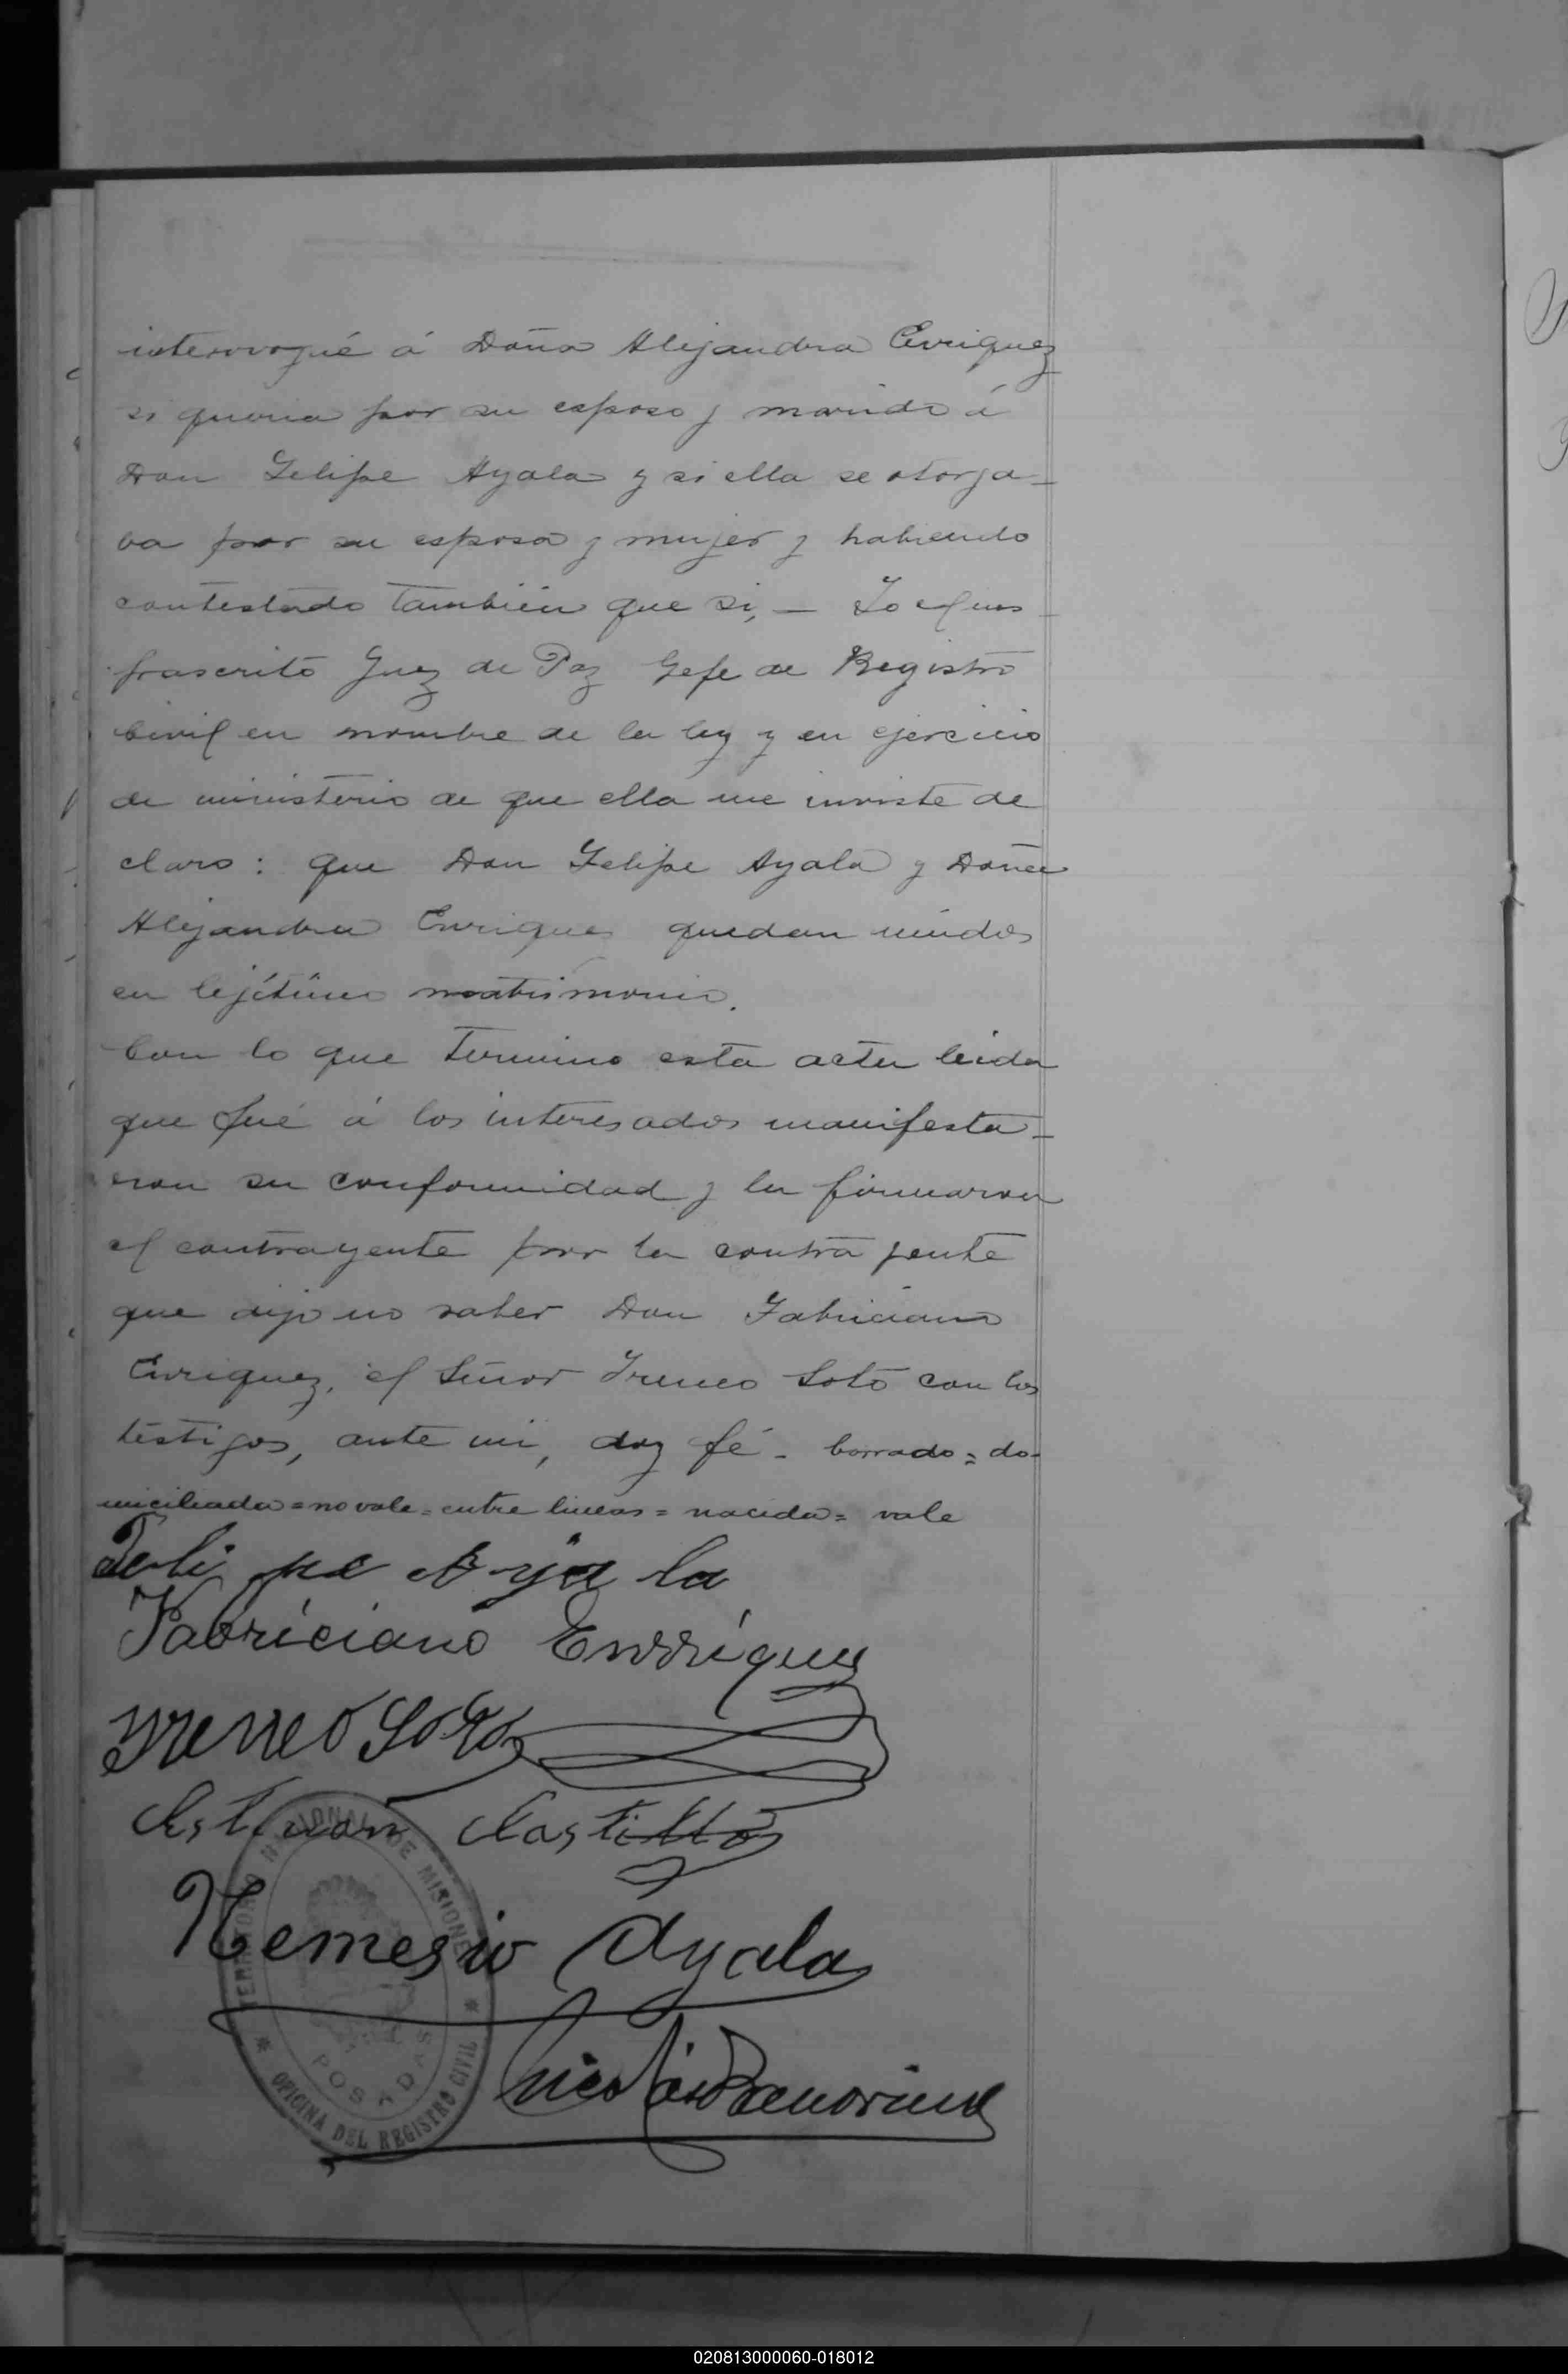 interrogué á Doña Alejandra Enriquez
si queria por su esposo y marido á
Don Felipe Ayala y si ella se otorga-
ba por su esposa y mujer y habiendo
contestado tambien que si, — Yo el ins-
frascrito Juez de Paz Gefe de Registro
Civil en nombre de la ley y en ejercicio
de ministerio de que ella me inviste de
claro: que Don Felipe Ayala y Doña
Alejandra Enriquez quedan unidos
en lejítimo matrimonio.
Con lo que termino esta acta leida
que fué á los interesados manifesta-
ron su conformidad y la firmaron
el contrayente por la contra yente
que dijo no saber Don Fabriciano
Enriquez, el Señor Ireneo Soto con los
testigos, ante mi, doy fé - borrado = do-
miciliada = no vale = entre lineas = nacida = vale
Feli pe A ya la
Fabriciano Enrriquez
Yreneo Soto
Castillo
Nemesio Ayala
Nicolás
TERRITORIO NACIONAL DE MISIONES
POSADAS
* OFICINA DEL REGISTRO CIVIL *
020813000060-018012